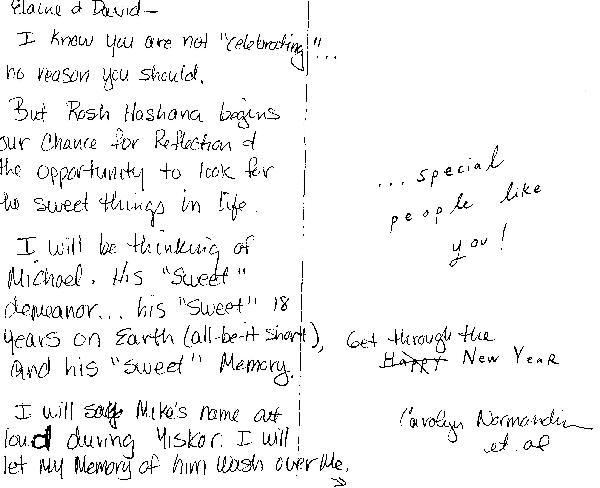 Elaine & David—
I know you are not "celebrating"...
no reason you should.
But Rosh Hashana begins
our Chance for Reflection &
the opportunity to look for
the sweet things in life.
I will be thinking of
Michael. His "Sweet"
demeanor... his "Sweet" 18
years on Earth (all-be-it short),
and his "Sweet" Memory.
I will say Mike's name out
loud during Yiskor. I will
let my Memory of him wash over Me.
... special
people like
you!
Get through the
HAPPY New Year
Carolyn Normandin
et. al